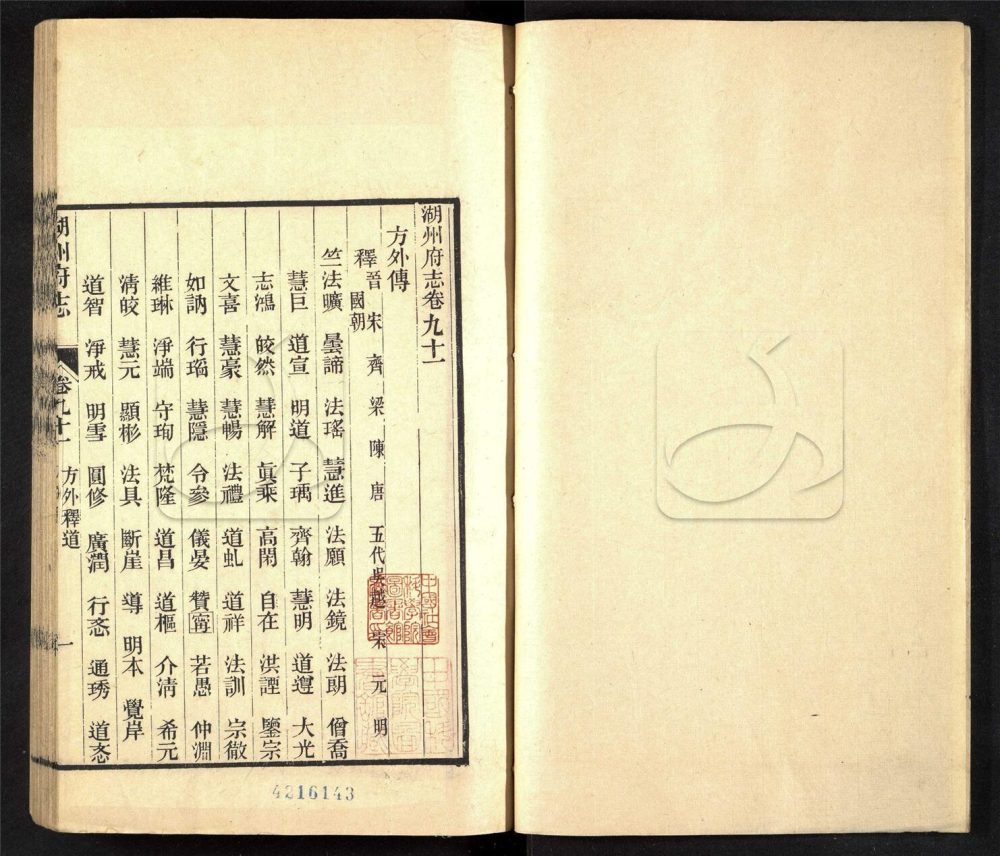 湖州府志卷九十一
方外傳
釋 晉 宋 齊 梁 陳 唐 五代吳越 宋 元 明 國朝
竺法曠 曇諦 法瑤 慧進 法願 法鏡 法朗 僧喬
慧巨 道宣 明道 子瑀 齊翰 慧明 道遵 大光
志鴻 皎然 慧解 眞乘 高閑 自在 洪諲 鑒宗
文喜 慧豪 慧暢 法禮 道虬 道祥 法訓 宗徹
如訥 行瑫 慧隱 令參 儀晏 贊甯 若愚 仲淵
維琳 淨端 守珣 梵隆 道昌 道樞 介清 希元
清皎 慧元 顯彬 法具 斷崖 導 明本 覺岸
道智 淨戒 明雪 圓修 廣潤 行忞 通琇 道忞
湖州府志 卷九十一 方外釋道 一
4216143